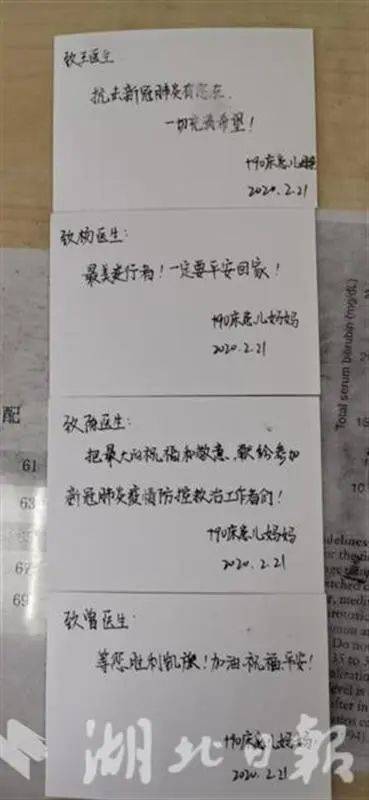 致王医生:
抗击新冠肺炎有您在,
一切充满希望!
+90床患儿妈妈
2020.2.21
致杨医生:
最美逆行者!一定要平安回家!
+90床患儿妈妈
2020.2.21
致陈医生:
把最大的祝福和敬意,献给参加
新冠肺炎疫情防控救治工作者们!
+90床患儿妈妈
2020.2.21
致曾医生:
等您胜利凯旋!加油.祝福.平安!
+90床患儿妈妈
2020.2.21
配
61
63
67
69
Total serum bilirubin (mg/dL)
25
20
15
10
湖北日报